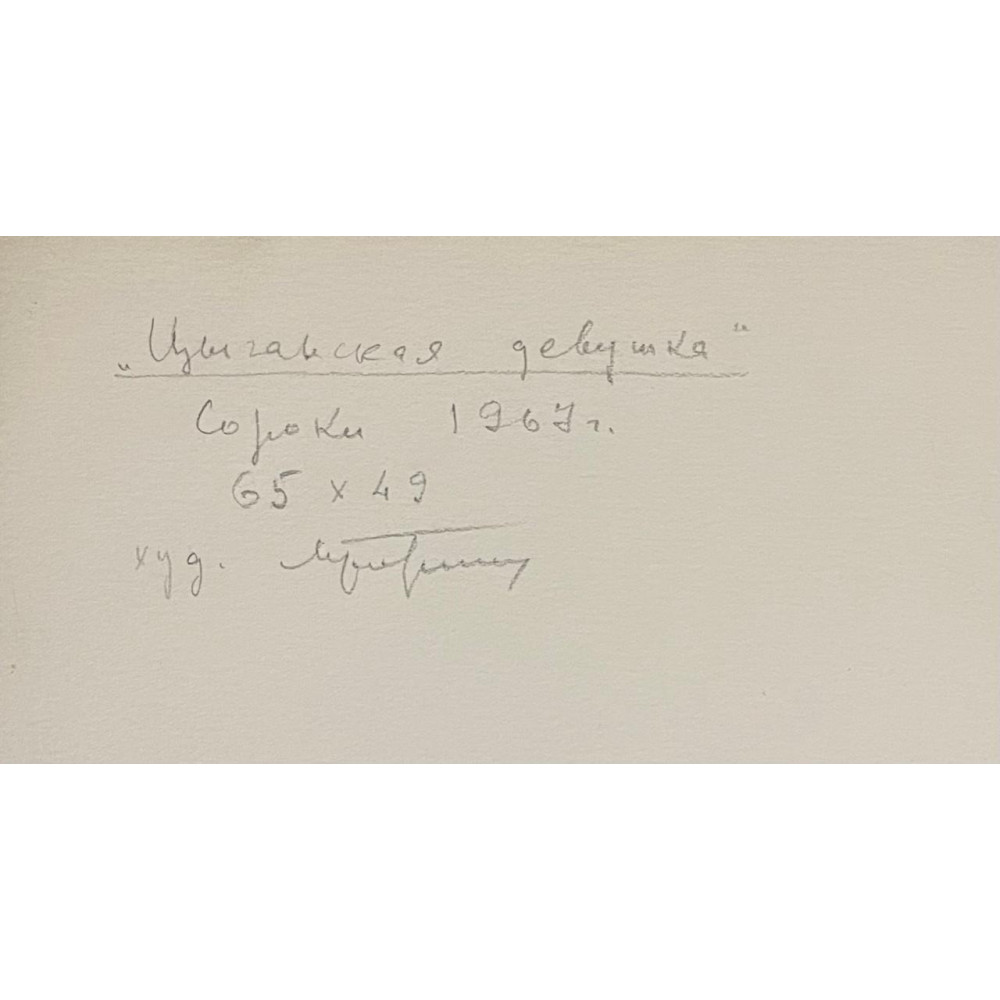 „Цыганская девушка“
Сороки 1967г.
65 х 49
худ.